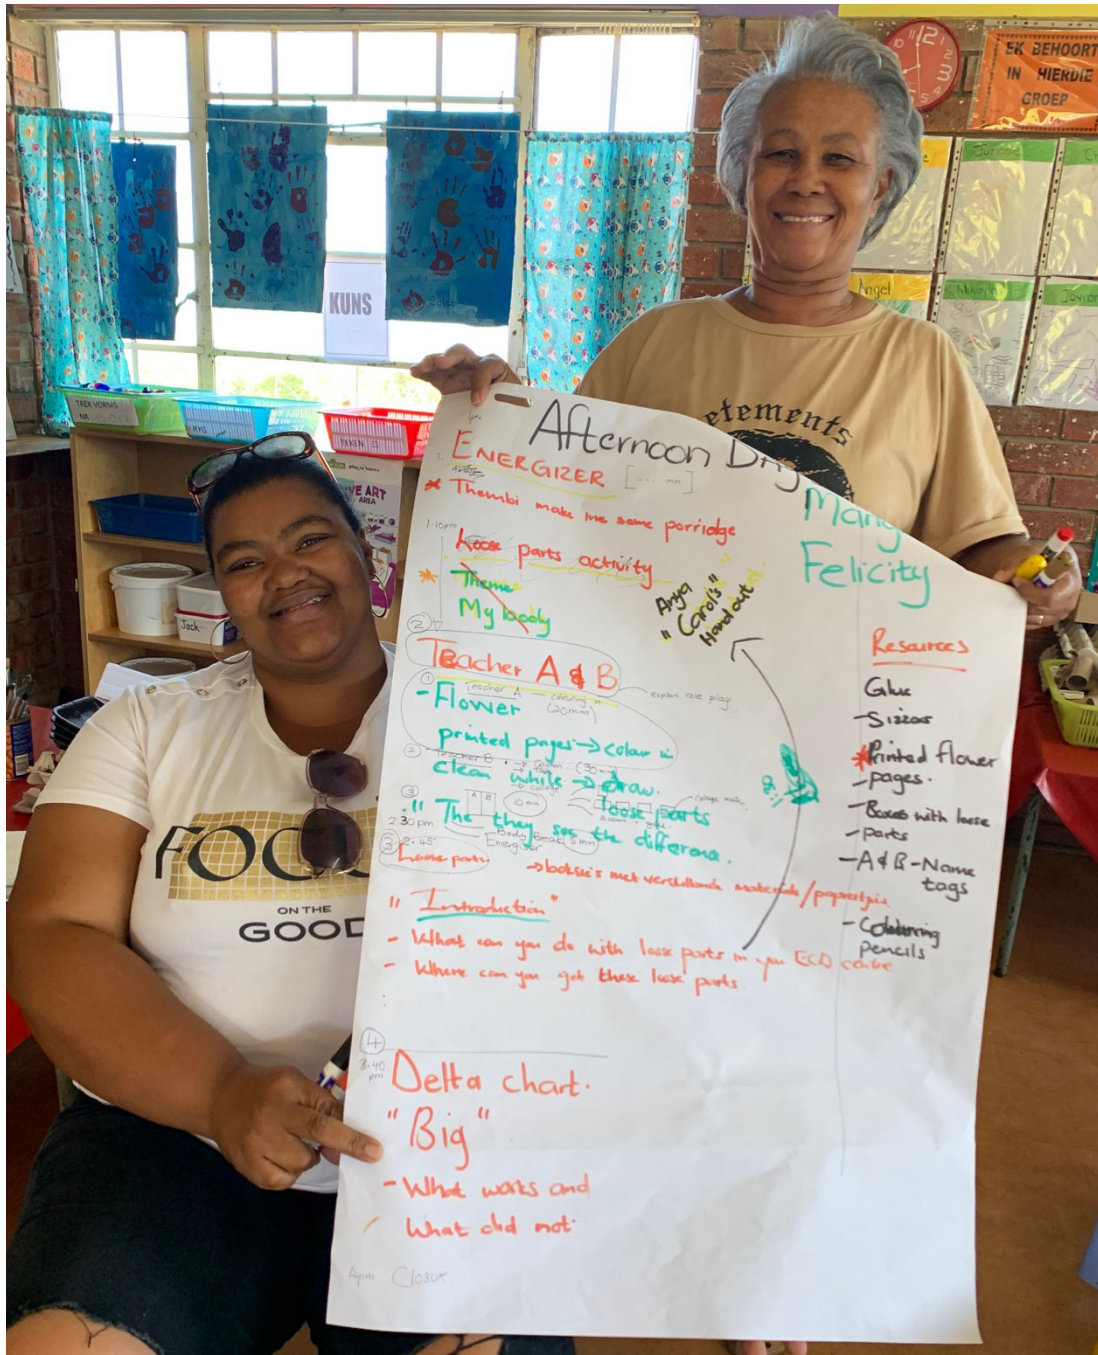 EK BEHOORT
IN HIERDIE
GROEP
12
Angel
Mikayla
KUNS
TREK VORMS
NA
RYG
TEKEN
ART
AREA
Jack
etements
FOCU
ON THE
GOOD
Afternoon
Many
Felicity
1.
ENERGIZER
Thembi make me some porridge
1-10pm
Loose parts activity
Theme
My body
Anya
"Carol's"
Handout
2
Teacher A & B
explain role play
1
Teacher A - colouring in
- Flower (20min)
printed pages → colour in
2
Teacher B (30min)
→ collage
clean while → draw.
3
A B 10 min
" The they see the difference.
loose parts
2:30pm
Body Break 5 min
Energiser
3 2.45
Loose parts.
→ boksie's met verskillende materials/
" Introduction "
- What can you do with loose parts in your ECD centre
- Where can you get these loose parts
4
3.40
pm
Delta chart.
"Big"
- What works and
What did not.
4pm Closure
Resources
Glue
- Sizzors
Printed flower
- pages.
- Boxes with loose
- parts
- A & B - Name
tags
- Colouring
pencils